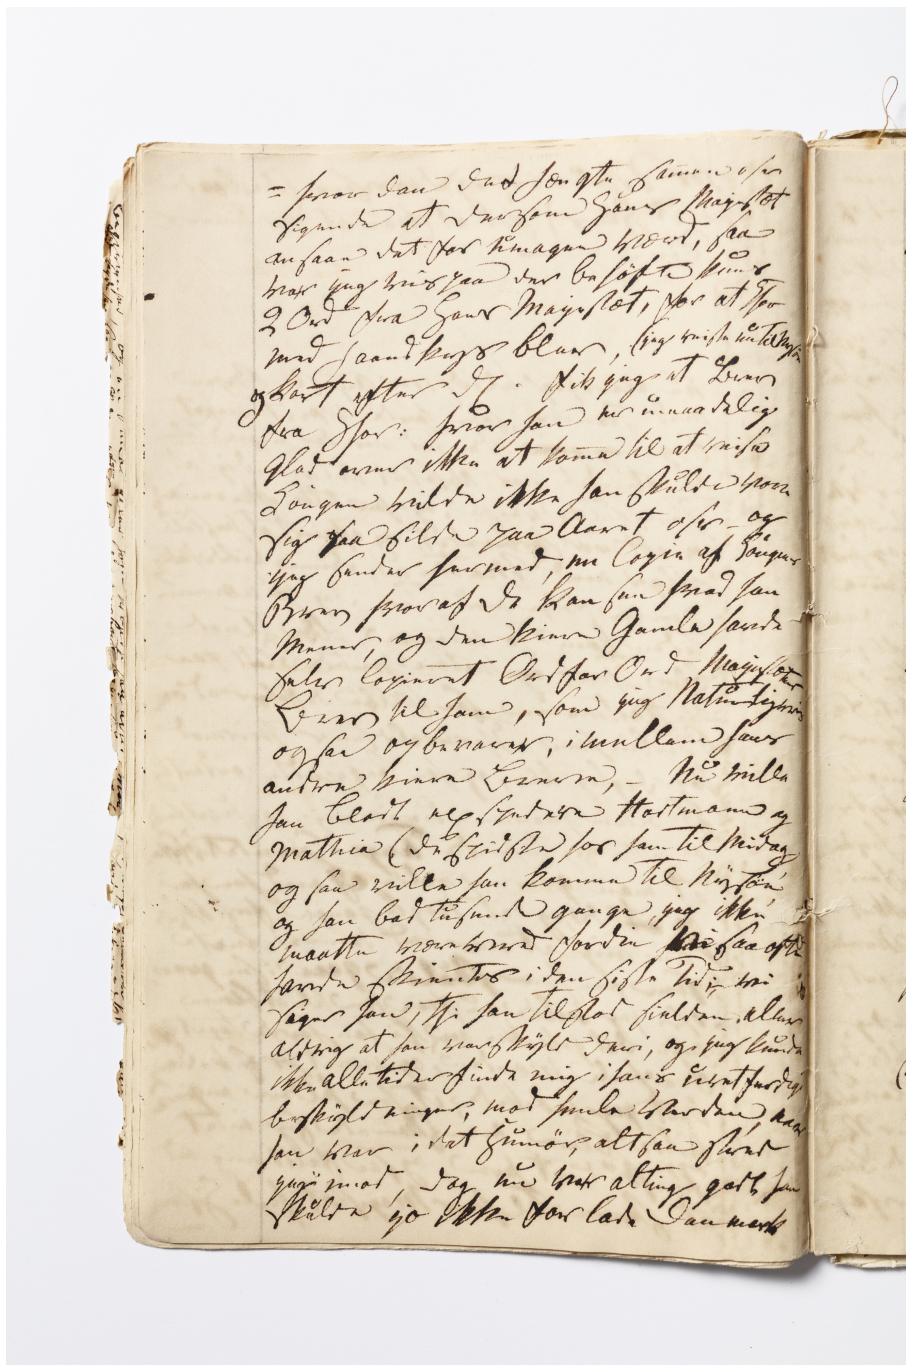 = hvordan det hengte sammen osv
sigende at dersom Hans Majestæt
ansaae det for Umagen værd, saa
var jeg vis paa der behøfte kuns
2 Ord fra Hans Majestæt, for at Thor
med Haandkyss blev, (jeg reiste nu til Nysøe
og kort efter d. fik jeg et Brev
fra Thor: hvor han er umaadelig
glad over ikke at komme til at reise
Kongen vilde ikke han skulde vove
sig saa silde paa Aaret osv – og
jeg sender hermed, en Copie af Kongens
Brev hvoraf De kan see hvad han
mener, og den kiere Gamle havde
selv Copieret Ord for Ord Majestætens
Brev til ham, som jeg Naturligvis
ogsaa opbevarer, imellem hans
andre kiere Breve, – Nu ville
han blodt expedere Hartmann og
Mathia (du spidste hos ham til Midag
og saa ville han komme til Nysøe
og han bad tusende gange, jeg ikke
maatte være vred fordie vi saa ofte
havde skientes i den siste Tid, vi
siger han, thi han tilstod sielden eller
aldrig at han var skyld deri, og jeg kunde
ikke alletider finde mig i hans uretferdige
beskyldninger, mod hele Verden, naar
han var i det Humør, altsaa stred
jeg imod, dog nu var alting godt han
skulde jo ikke forlade Danmark